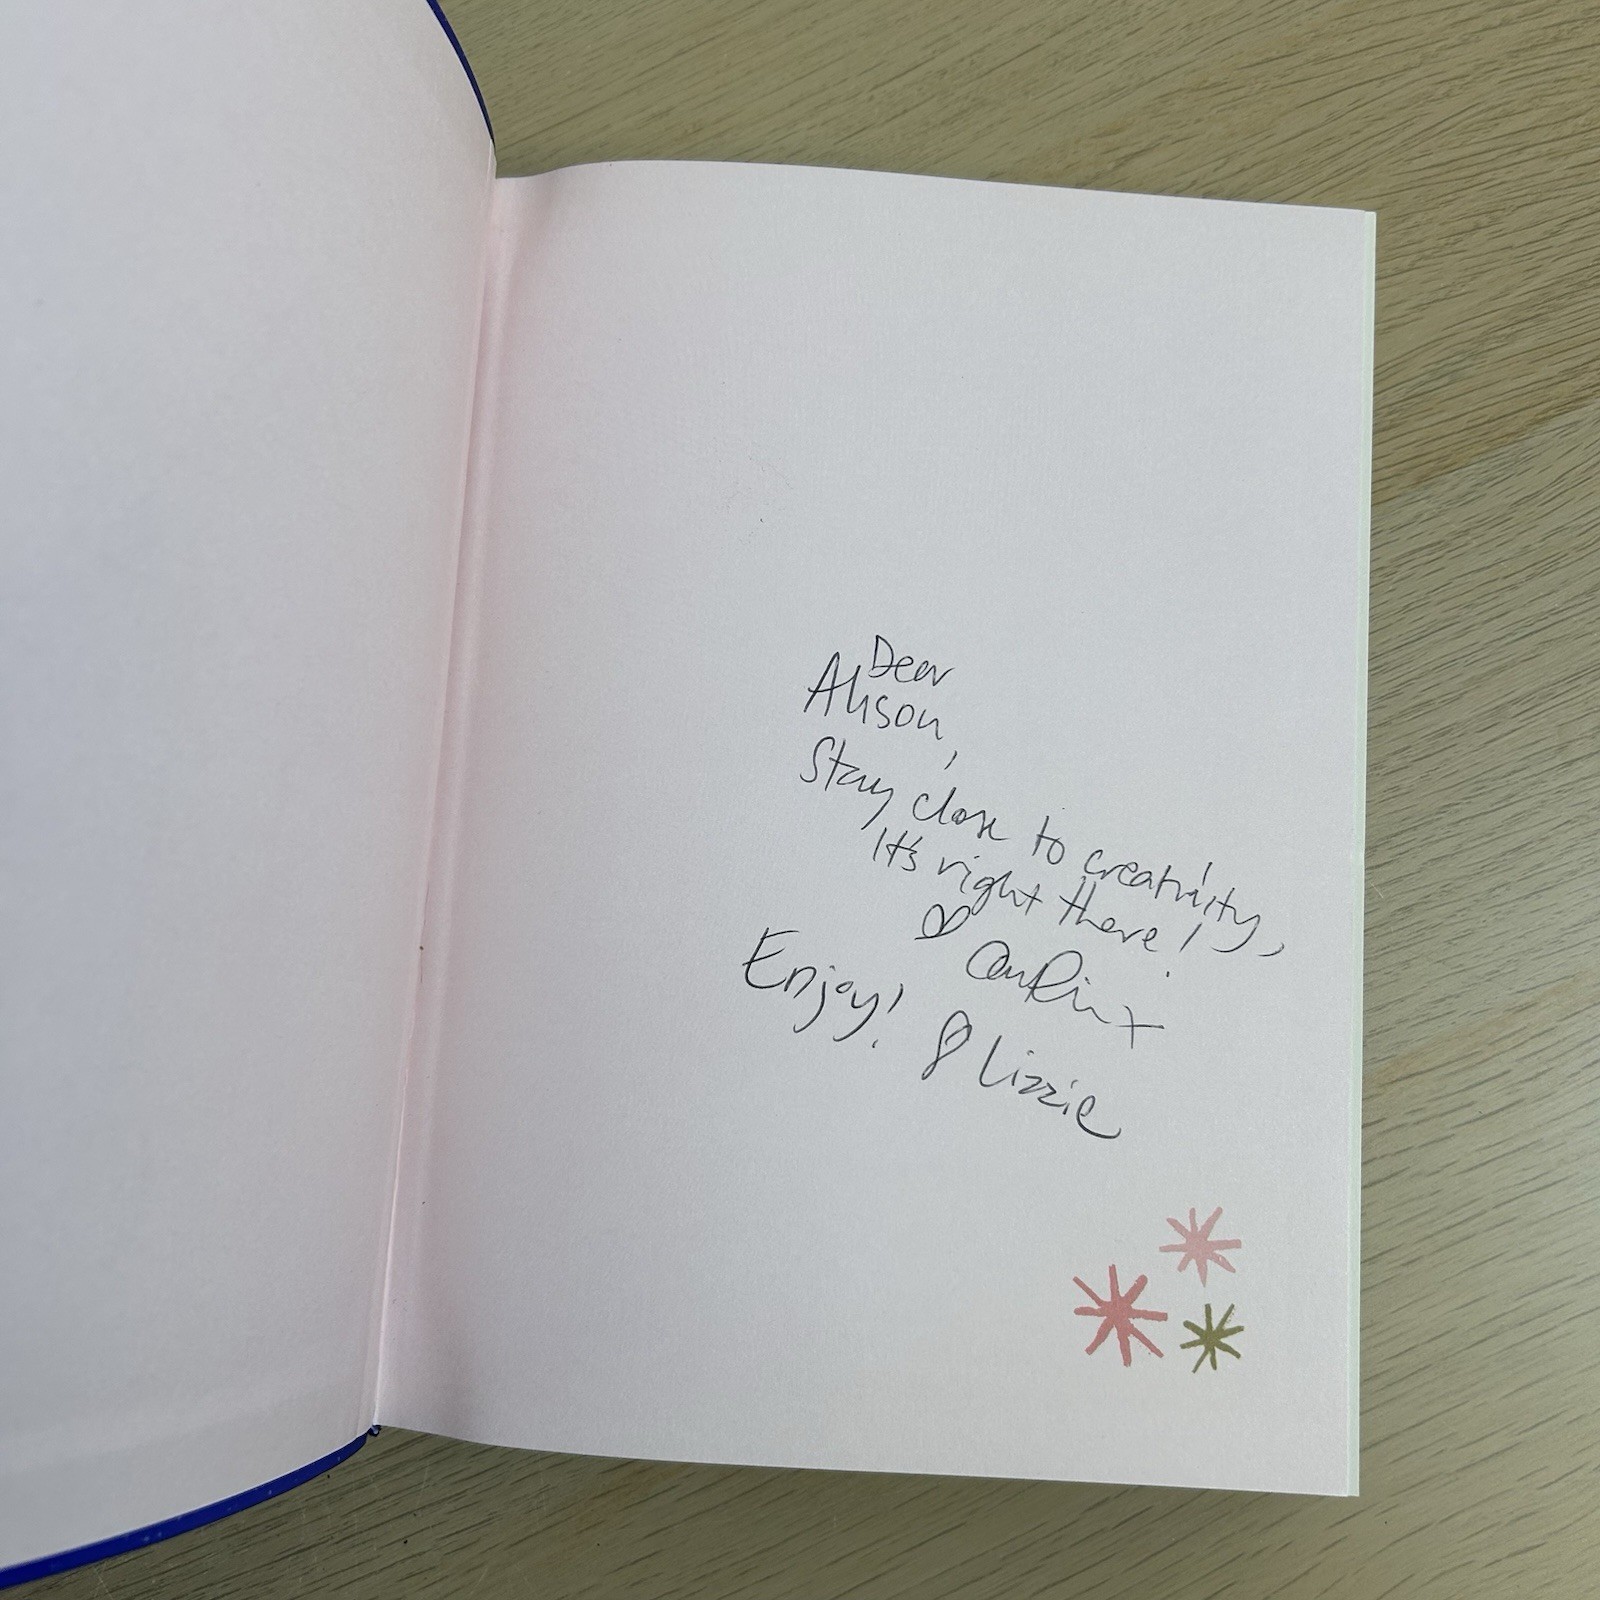 Dear
Alison,
Stay close to creativity,
It's right there!
Enjoy!
Lizzie